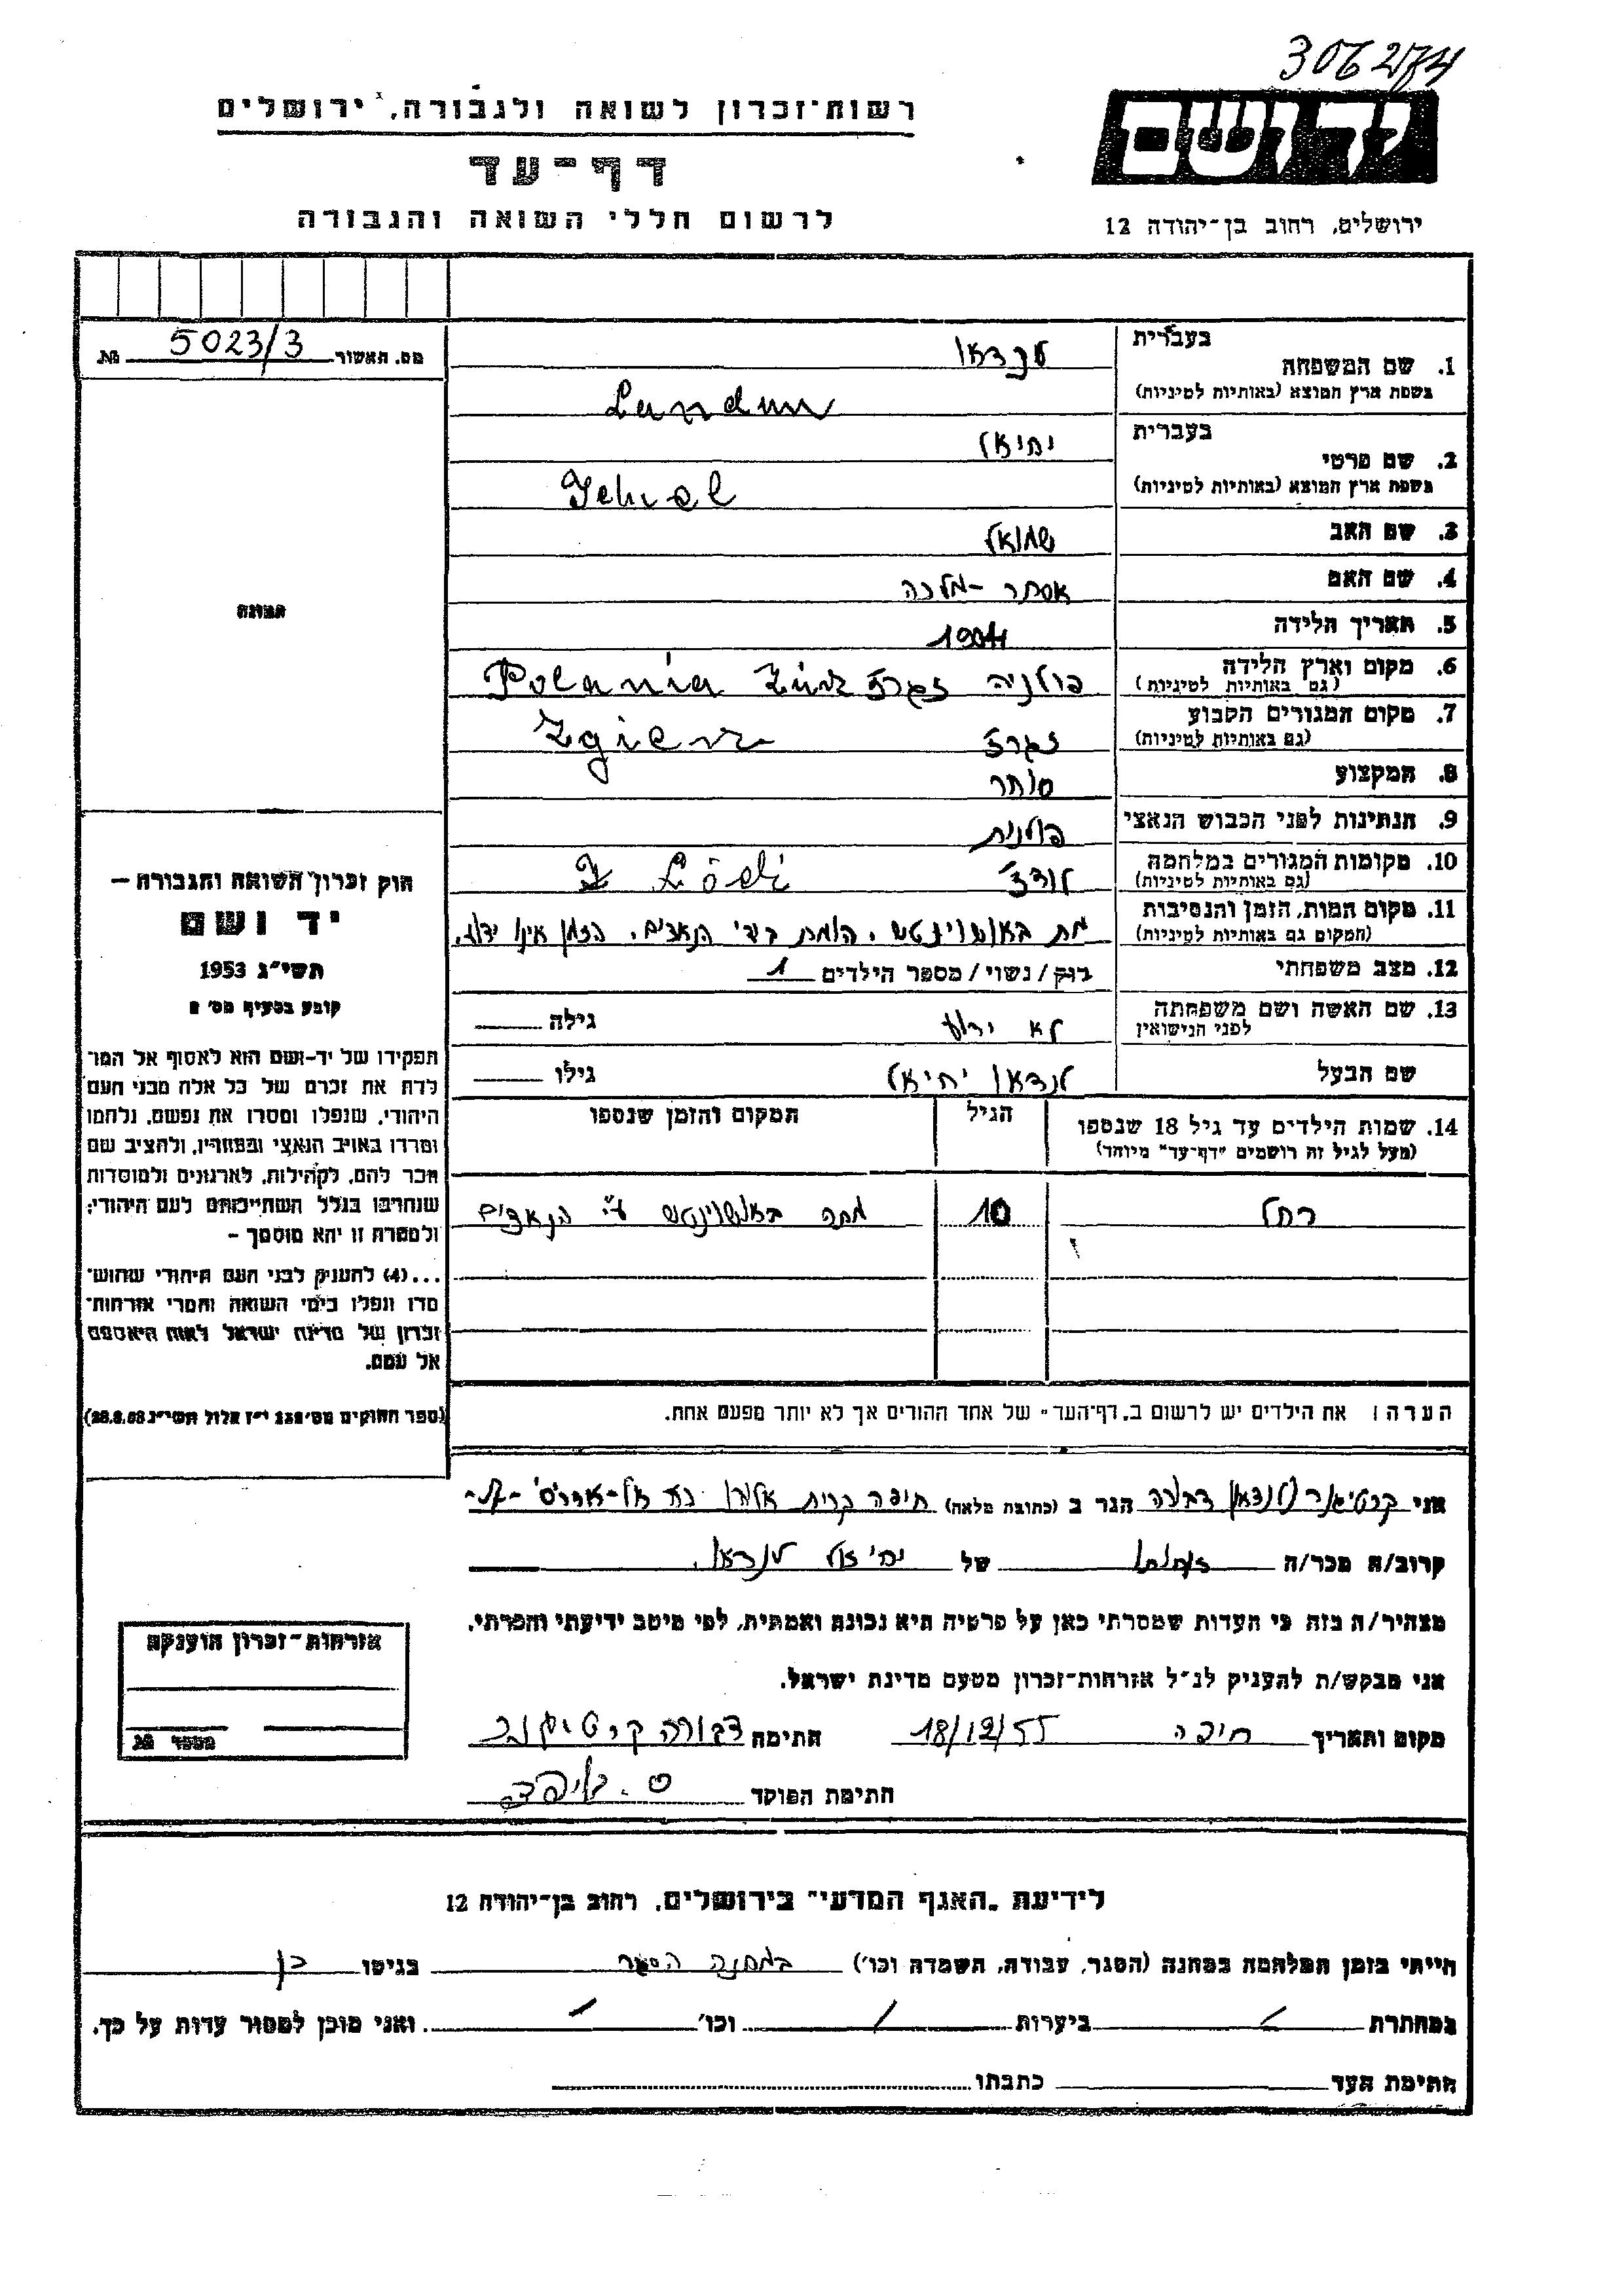 3062174
רשות־זכרון לשואה ולגבורה, ירושלים
דף־עד
לרשום חללי השואה והגבורה
יד ושם
ירושלים, רחוב בן־יהודה 12
מס. תאשור 5023/3 №
1. שם המשפחה בעברית לנדאו
בשפת ארץ המוצא (באותיות לטיניות) Landau
2. שם פרטי בעברית יחיאל
בשפת ארץ המוצא (באותיות לטיניות) Jehiel
3. שם האב שמואל
4. שם האם אסתר-מלכה
5. תאריך הלידה 1904
6. מקום וארץ הלידה פולניה זגרז Polania
(גם באותיות לטיניות)
7. מקום המגורים הקבוע זגרז Zgierz
(גם באותיות לטיניות)
8. המקצוע סוחר
9. הנתינות לפני הכבוש הנאצי פולנית
10. מקומות המגורים במלחמה לודז' Łódź
(גם באותיות לטיניות)
11. מקום המות, הזמן והנסיבות מת באושוינטש. הומת בידי הנאצים. הזמן אינו ידוע.
(המקום גם באותיות לטיניות)
12. מצב משפחתי רווק/נשוי/מספר הילדים 1
13. שם האשה ושם משפחתה לא ידוע גילה
לפני הנישואין
שם הבעל לנדאו יחיאל גילו
14. שמות הילדים עד גיל 18 שנספו הגיל המקום והזמן שנספו
(מעל לגיל זה רושמים "דף־עד" מיוחד)
רחל 10 מתה באושוינטש ע"י הנאצים
הערה: את הילדים יש לרשום ב"דף־העד" של אחד ההורים אך לא יותר מפעם אחת.
תמונה
חוק זכרון השואה והגבורה —
יד ושם
תשי"ג 1953
קובע בסעיף מס' 2
תפקידו של יד־ושם הוא לאסוף אל המו־
לדת את זכרם של כל אלה מבני העם
היהודי, שנפלו ומסרו את נפשם, נלחמו
ומרדו באויב הנאצי ובעוזריו, ולהציב שם
וזכר להם, לקהילות, לארגונים ולמוסדות
שנחרבו בגלל השתייכותם לעם היהודי;
ולמטרה זו יהא מוסמך –
...(4) להעניק לבני העם היהודי שהוש־
מדו ונפלו בימי השואה והמרי אזרחות־
זכרון של מדינת ישראל לאות היאספם
אל עמם.
(ספר החוקים מס' 132 י"ז אלול תשי"ג 28.8.53)
אני לנדאו דבורה הגר ב (כתובת מלאה) חיפה קרית אליהו
קרוב/ה מכר/ה של יחיאל לנדאו.
מצהיר/ה בזה כי העדות שמסרתי כאן על פרטיה היא נכונה ואמתית, לפי מיטב ידיעתי והכרתי.
אני מבקש/ת להעניק לנ"ל אזרחות־זכרון מטעם מדינת ישראל.
מקום ותאריך חיפה 18/12/55 חתימה דבורה
חתימת הפוקד
אזרחות־זכרון הוענקה
מספר №
לידיעת "האגף המדעי" בירושלים, רחוב בן־יהודה 12
הייתי בזמן המלחמה במחנה (הסגר, עבודה, השמדה וכו') במחנה הסגר בגיטו כן
במחתרת ביערות וכו' ואני מוכן למסור עדות על כך.
חתימת העד כתבתו